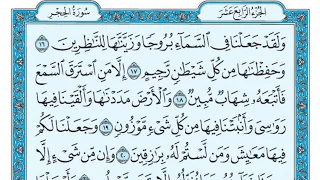 سُورَةُ الحِجْرِ الجُزْءُ الرَّابِعَ عَشَرَ
وَلَقَدْ جَعَلْنَا فِي السَّمَآءِ بُرُوجًا وَزَيَّنَّٰهَا لِلنَّٰظِرِينَ ١٦
وَحَفِظْنَٰهَا مِن كُلِّ شَيْطَٰنٍ رَّجِيمٍ ١٧ إِلَّا مَنِ اسْتَرَقَ السَّمْعَ
فَأَتْبَعَهُۥ شِهَابٌ مُّبِينٌ ١٨ وَالْأَرْضَ مَدَدْنَٰهَا وَأَلْقَيْنَا فِيهَا
رَوَٰسِيَ وَأَنۢبَتْنَا فِيهَا مِن كُلِّ شَيْءٍ مَّوْزُونٍ ١٩ وَجَعَلْنَا لَكُمْ
فِيهَا مَعَٰيِشَ وَمَن لَّسْتُمْ لَهُۥ بِرَٰزِقِينَ ٢٠ وَإِن مِّن شَيْءٍ إِلَّا